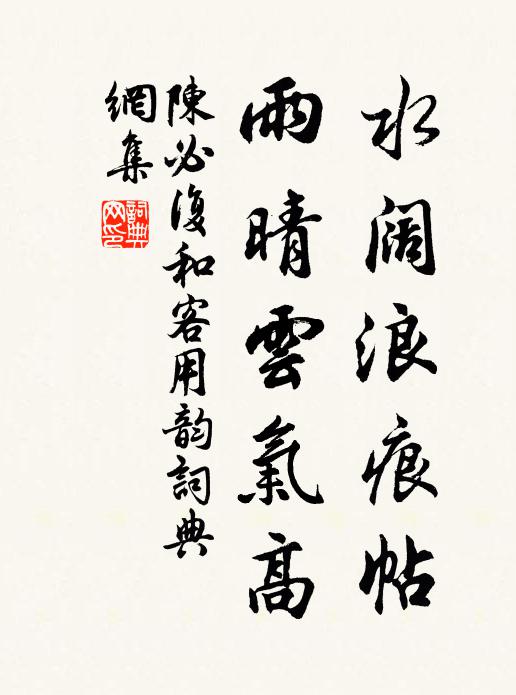 水阔浪痕帖
雨晴雲氣高
陳必復和客用韵詞典
網集
詞典网印